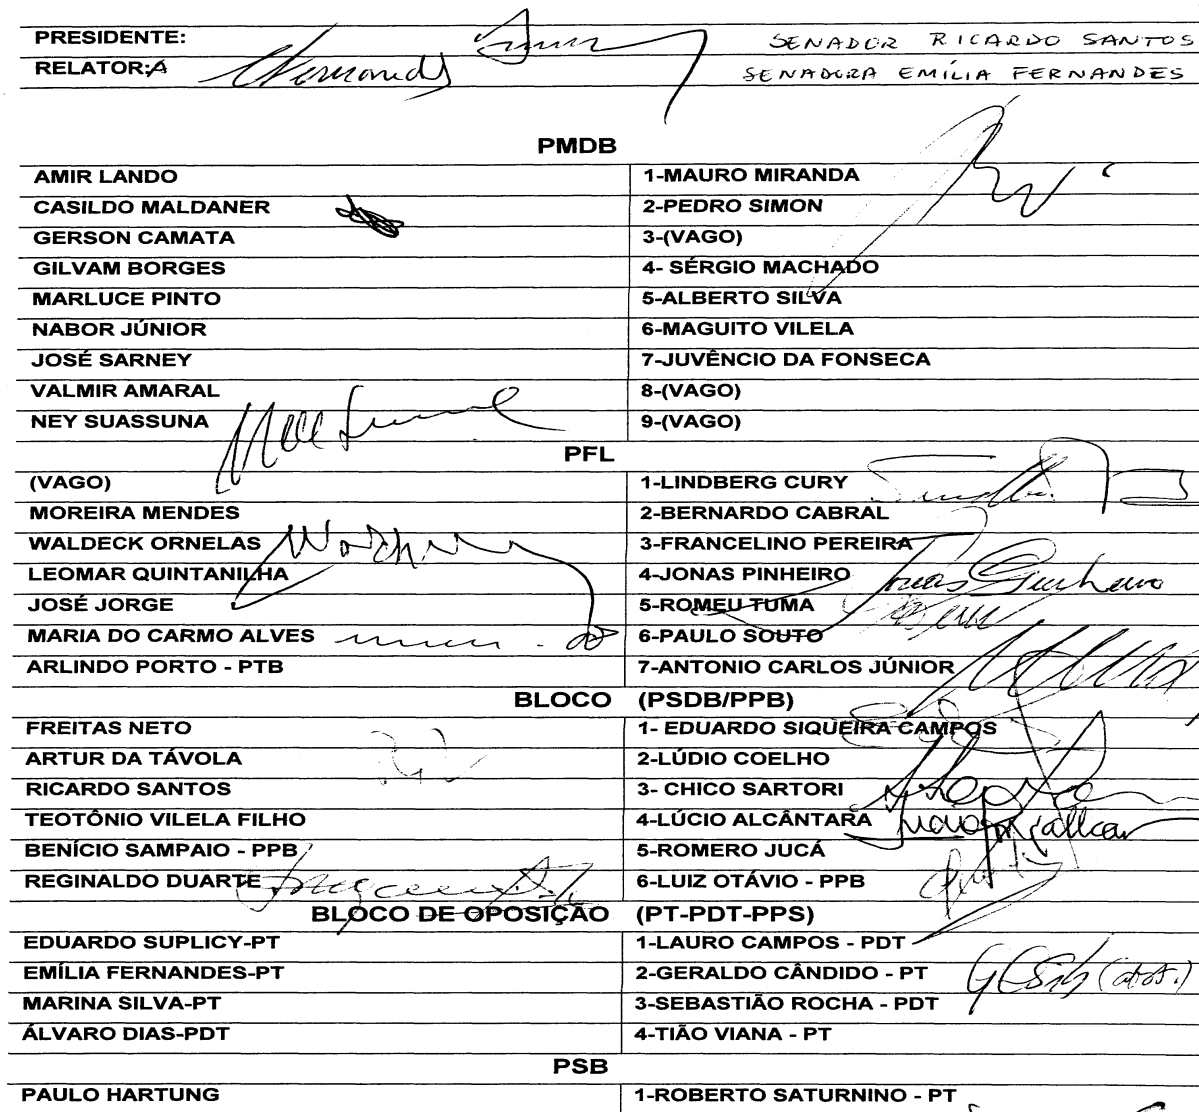 PRESIDENTE: SENADOR RICARDO SANTOS
RELATOR:A SENADORA EMÍLIA FERNANDES
PMDB
AMIR LANDO 1-MAURO MIRANDA
CASILDO MALDANER 2-PEDRO SIMON
GERSON CAMATA 3-(VAGO)
GILVAM BORGES 4- SÉRGIO MACHADO
MARLUCE PINTO 5-ALBERTO SILVA
NABOR JÚNIOR 6-MAGUITO VILELA
JOSÉ SARNEY 7-JUVÊNCIO DA FONSECA
VALMIR AMARAL 8-(VAGO)
NEY SUASSUNA 9-(VAGO)
PFL
(VAGO) 1-LINDBERG CURY
MOREIRA MENDES 2-BERNARDO CABRAL
WALDECK ORNELAS 3-FRANCELINO PEREIRA
LEOMAR QUINTANILHA 4-JONAS PINHEIRO
JOSÉ JORGE 5-ROMEU TUMA
MARIA DO CARMO ALVES 6-PAULO SOUTO
ARLINDO PORTO - PTB 7-ANTONIO CARLOS JÚNIOR
BLOCO (PSDB/PPB)
FREITAS NETO 1- EDUARDO SIQUEIRA CAMPOS
ARTUR DA TÁVOLA 2-LÚDIO COELHO
RICARDO SANTOS 3- CHICO SARTORI
TEOTÔNIO VILELA FILHO 4-LÚCIO ALCÂNTARA
BENÍCIO SAMPAIO - PPB 5-ROMERO JUCÁ
REGINALDO DUARTE 6-LUIZ OTÁVIO - PPB
BLOCO DE OPOSIÇÃO (PT-PDT-PPS)
EDUARDO SUPLICY-PT 1-LAURO CAMPOS - PDT
EMÍLIA FERNANDES-PT 2-GERALDO CÂNDIDO - PT
MARINA SILVA-PT 3-SEBASTIÃO ROCHA - PDT
ÁLVARO DIAS-PDT 4-TIÃO VIANA - PT
PSB
PAULO HARTUNG 1-ROBERTO SATURNINO - PT